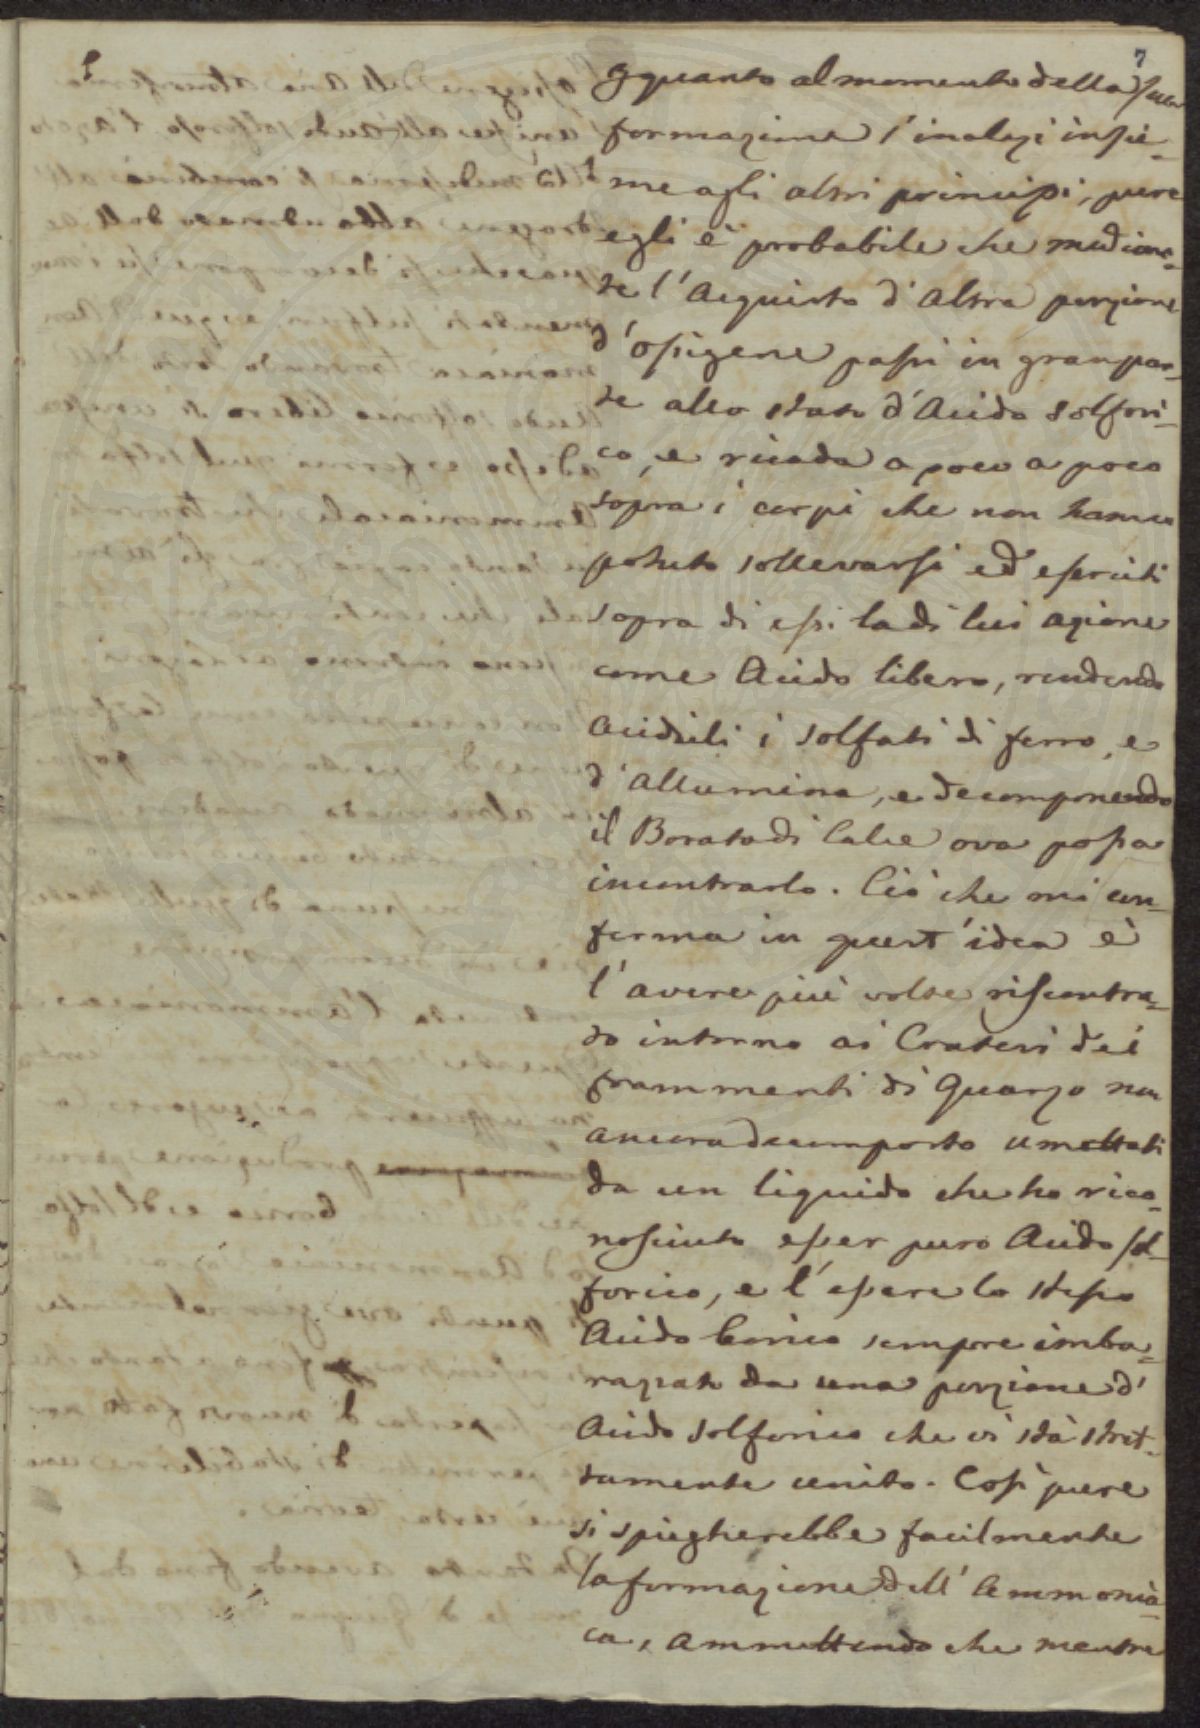 7
quanto al momento della sua
formazione s'inalzi insie-
me agli altri principi, pure
egli è probabile che median-
te l'Acquisto d'Altra porzione
d'ossigene passi in gran par-
te allo stato d'Acido Solfori-
co, e ricada a poco a poco
sopra i corpi che non hanno
potuto sollevarsi ed eserciti
sopra di essi la di lui azione
come Acido libero, rendendo
Aciduli i solfati di ferro, e
d'Allumina, e decomponendo
il Borato di Calce ova possa
incontrarlo. Ciò che mi con-
ferma in quest'idea è
l'avere più volte riscontra-
to intorno ai Crateri dei
frammenti di Quarzo non
ancora decomposto umettati
da un liquido che ho rico-
nosciuto esser puro Acido sol-
forico, e l'essere lo stesso
Acido borico sempre imba-
razzato da una porzione d'
Acido solforico che vi stà stret-
tamente unito. Così pure
si spiegherebbe facilmente
la formazione dell'Ammonia-
ca, Ammettendo che mentre